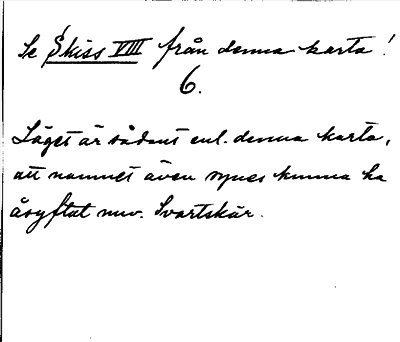 Se Skiss VIII från denna karta!
6.
Läget är sådant enl. denna karta,
att namnet även synes kunna ha
åsyftat nuv. Svartskär.